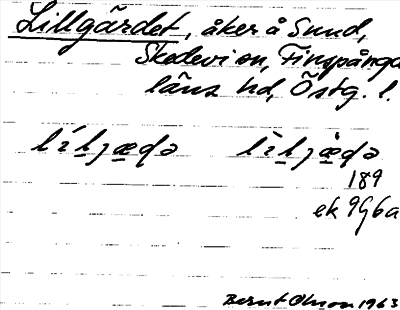 Lillgärdet, åker å Sund,
Skedevi sn, Finspånga
läns hd, Östg. l.
189
ek 9G6a
Bernt Olsson 1963